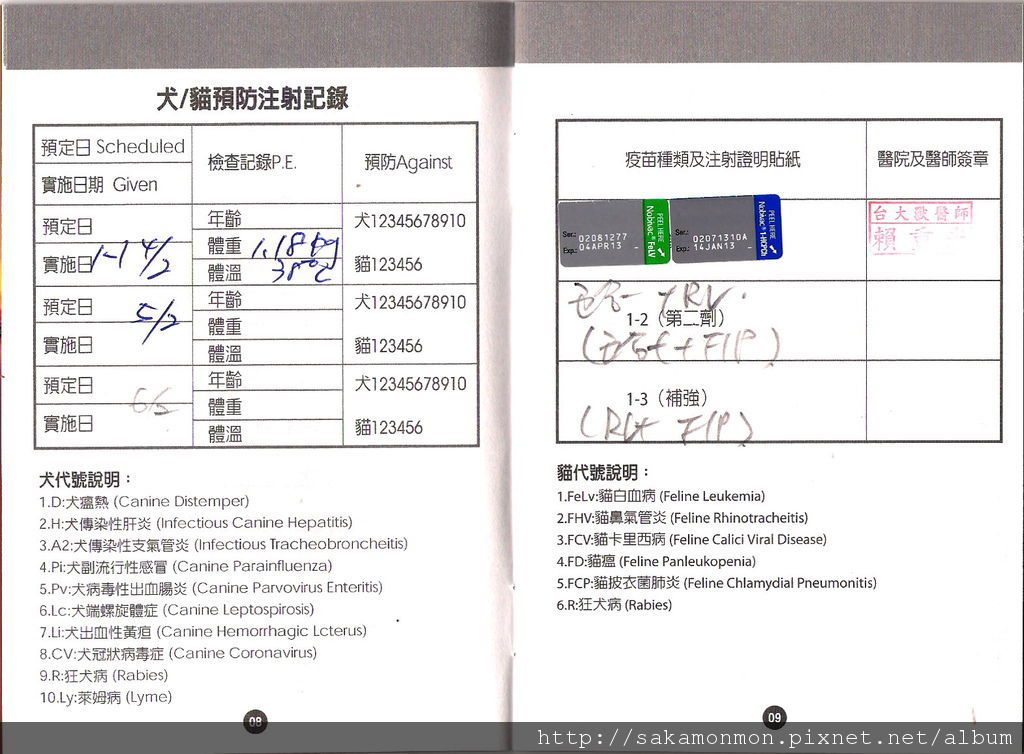 犬/貓預防注射記錄
預定日 Scheduled
實施日期 Given
檢查記錄P.E.
預防Against
預定日
實施日 1-1 4/2
年齡
體重 1.18 kg
體溫 38°C
犬12345678910
貓123456
預定日 5/2
實施日
年齡
體重
體溫
犬12345678910
貓123456
預定日
實施日
年齡
體重
體溫
犬12345678910
貓123456
犬代號說明：
1.D:犬瘟熱 (Canine Distemper)
2.H:犬傳染性肝炎 (Infectious Canine Hepatitis)
3.A2:犬傳染性支氣管炎 (Infectious Tracheobroncheitis)
4.Pi:犬副流行性感冒 (Canine Parainfluenza)
5.Pv:犬病毒性出血腸炎 (Canine Parvovirus Enteritis)
6.Lc:犬端螺旋體症 (Canine Leptospirosis)
7.Li:犬出血性黃疸 (Canine Hemorrhagic Lcterus)
8.CV:犬冠狀病毒症 (Canine Coronavirus)
9.R:狂犬病 (Rabies)
10.Ly:萊姆病 (Lyme)
08
疫苗種類及注射證明貼紙
醫院及醫師簽章
Ser.: 02081277
Exp.: 04APR13
PEEL HERE
Nobivac FeLV
Ser.: 02071310A
Exp.: 14JAN13
PEEL HERE
Nobivac 1-HCPCh
台大獸醫師
賴
+RV.
1-2（第二劑）
+ FIP)
1-3（補強）
(RV+ FIP)
貓代號說明：
1.FeLv:貓白血病 (Feline Leukemia)
2.FHV:貓鼻氣管炎 (Feline Rhinotracheitis)
3.FCV:貓卡里西病 (Feline Calici Viral Disease)
4.FD:貓瘟 (Feline Panleukopenia)
5.FCP:貓披衣菌肺炎 (Feline Chlamydial Pneumonitis)
6.R:狂犬病 (Rabies)
09
http://sakamonmon.pixnet.net/album